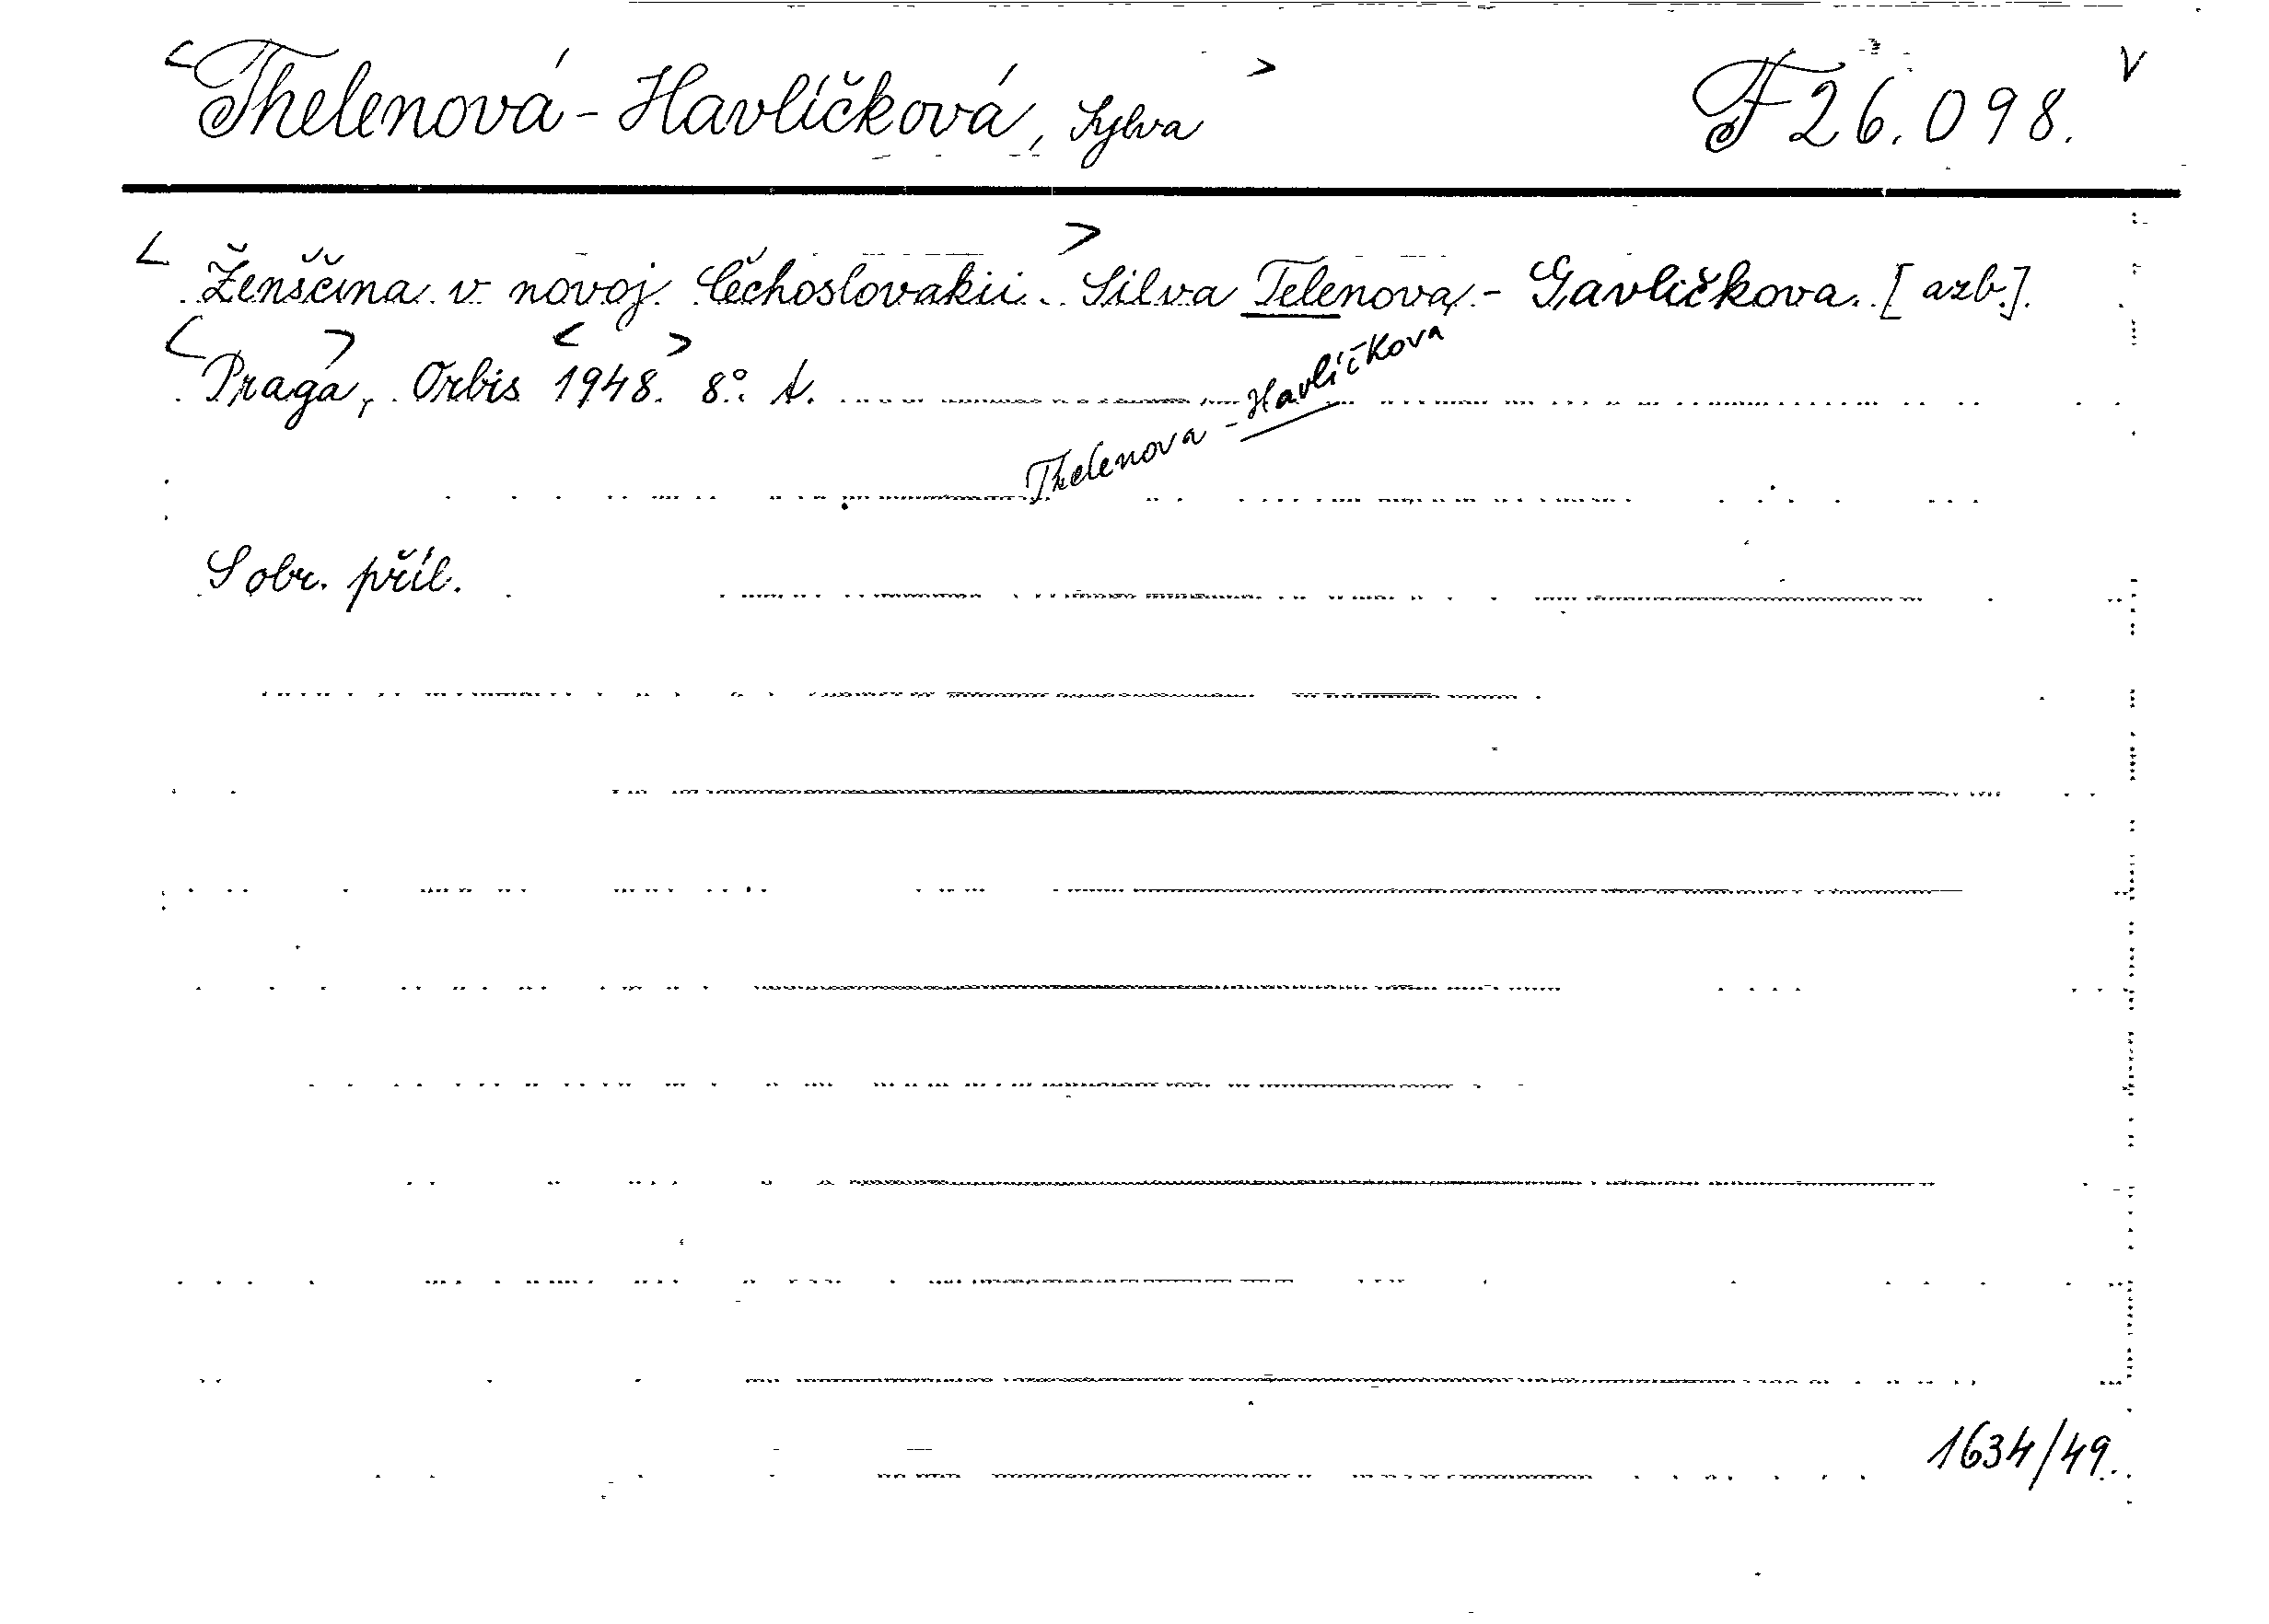 <Thelenová-Havlíčková, Sylva> F 26.098. V
<Ženščina v novoj Čechoslovakii.> Silva Telenova-Gavličkova. [azb.].
<Praga>, Orbis <1948.> 8°. A.
Thelenova-Havlíčkova
S obr. příl.
1634/49.